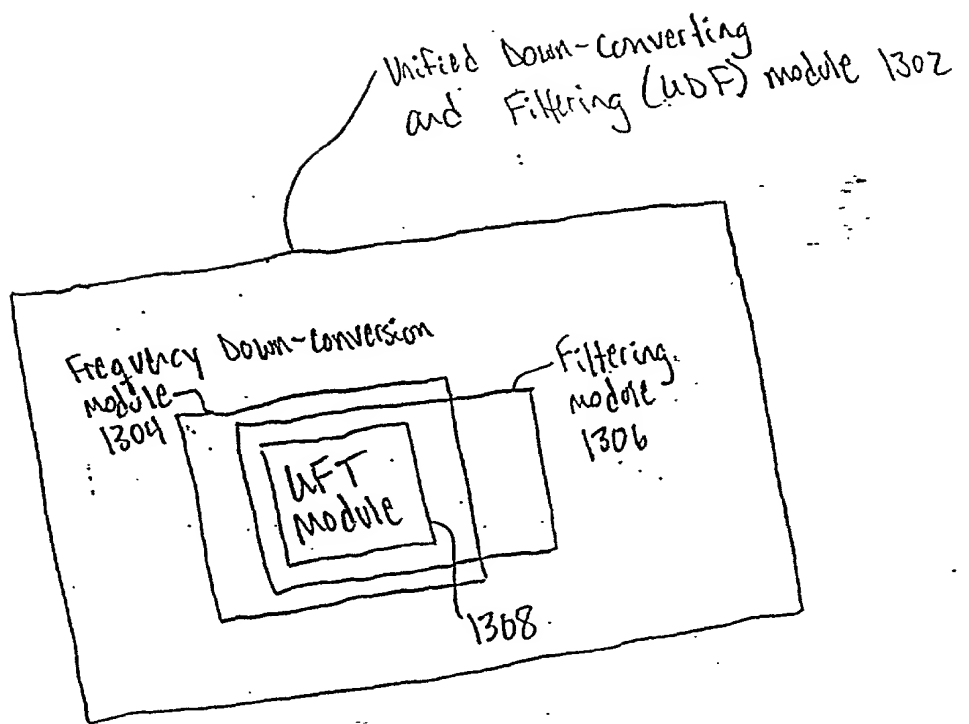 Unified Down-Converting
and Filtering (UDF) module 1302
Frequency Down-conversion
module
1304
Filtering
module
1306
UFT
Module
1308